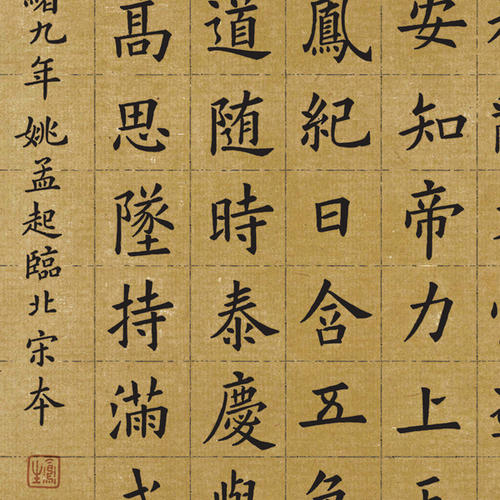 安知帝力上
鳳紀日含五
道随時泰慶
髙思墜持滿
緒九年姚孟起臨北宋本
鳳生